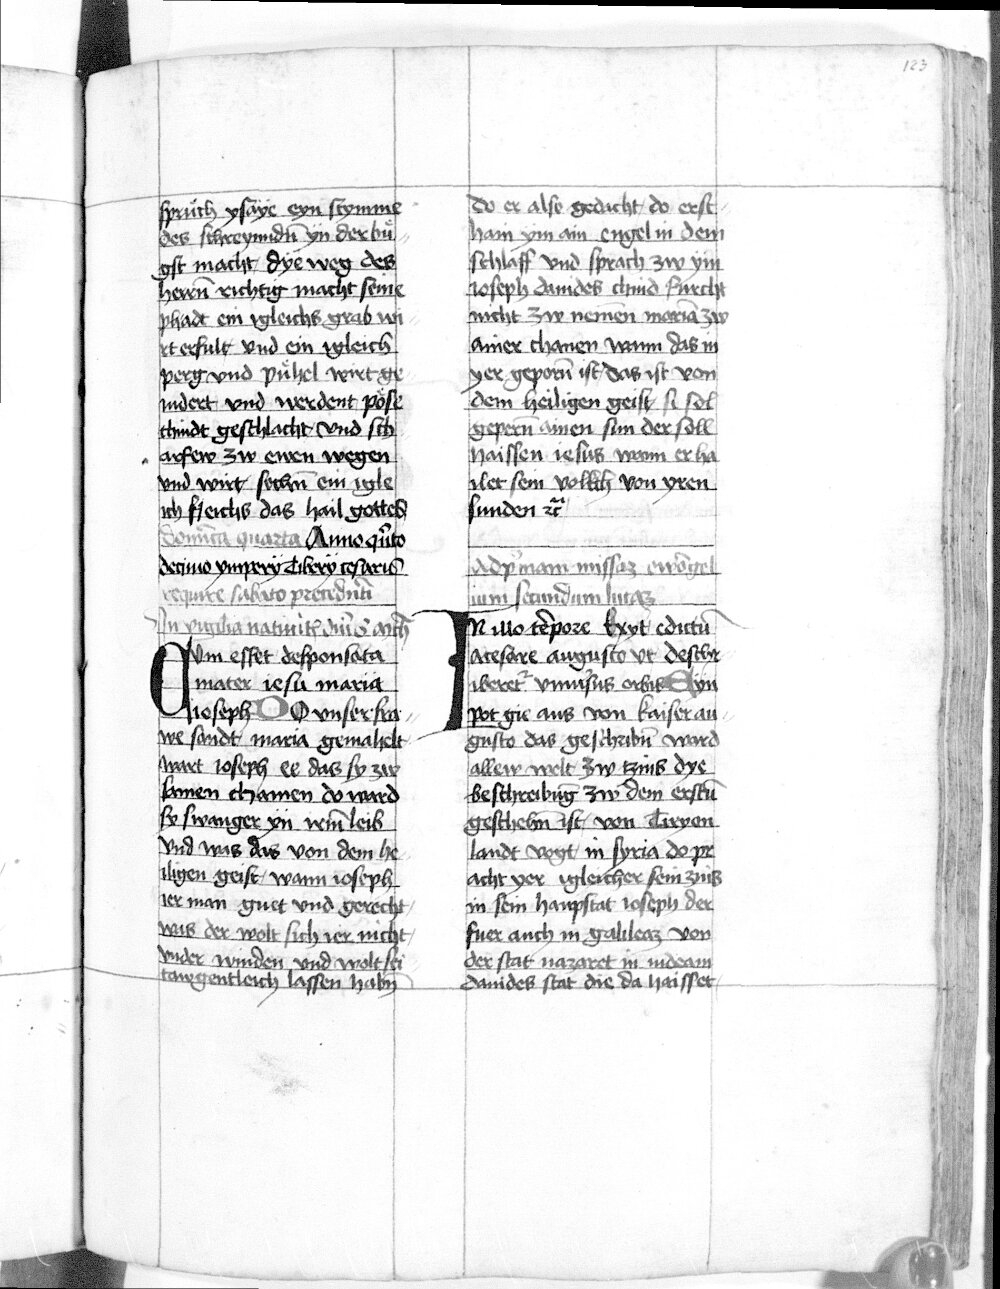 123
spruch ysaye eyn stymme
des schreymdn̄ yn der bü
gst macht dye weg des
herrn̄ richtig macht seine
phadt ein igleichs grab wi
rt erfult vnd ein igleich
perg vnd pühel wirt ge
nidert vnd werdent pöse
chindt geschlacht vnd sch
arfew zw euen wegen
vnd wirt sechn̄ ein igle
ich fleichs das hail gottes
Domīca quarta Anno qn̄to
decimo ymperÿ Tiberÿ cesaris
require sabato precedn̄ti
In vigilia natiuit
Cvm esset desponsata
mater iesu maria
ioseph DO vnser fra
we sandt maria gemahelt
wart ioseph ee das sy zw
samen chamen do ward
sy swanger yn irem̄ leib
vnd was das von dem he
iligen geist wann ioseph
ier man guet vnd gerecht
was der wolt sich ier nicht
vnder winden vnd wolt sei
tawgentleich lassen habn̄
do er also gedacht do ersc
hain ym ain engel in dem
schlaff vnd sprach zw ym
ioseph dauides chind furcht
nicht zw nemen mariā zw
ainer chanen wann das in
yer geporn̄ ist das ist von
dem heiligen geist si sol
geperen ainen sun der soll
haissen iesus wann er ha
ilet sein vollkh von yren
sunden rc̄
Ad pͥmam missaz ewāgel
ium secundum lucaz
IN illo tēpore Exyt edictū
a cesare augusto vt descbr
iberet vniuersus orbis Eyn
pot gie aus von kaiser au
gusto das geschribn̄ ward
allew welt zw tzins dye
beschreibūg zw dem erstn̄
geschehn̄ ist von Ciryon
landt vogt in syria do pr
acht yer igleicher sein zins
in sein haupstat ioseph der
fuer auch in galileaz von
der stat nazaret in iudeam
dauides stat die da haisset